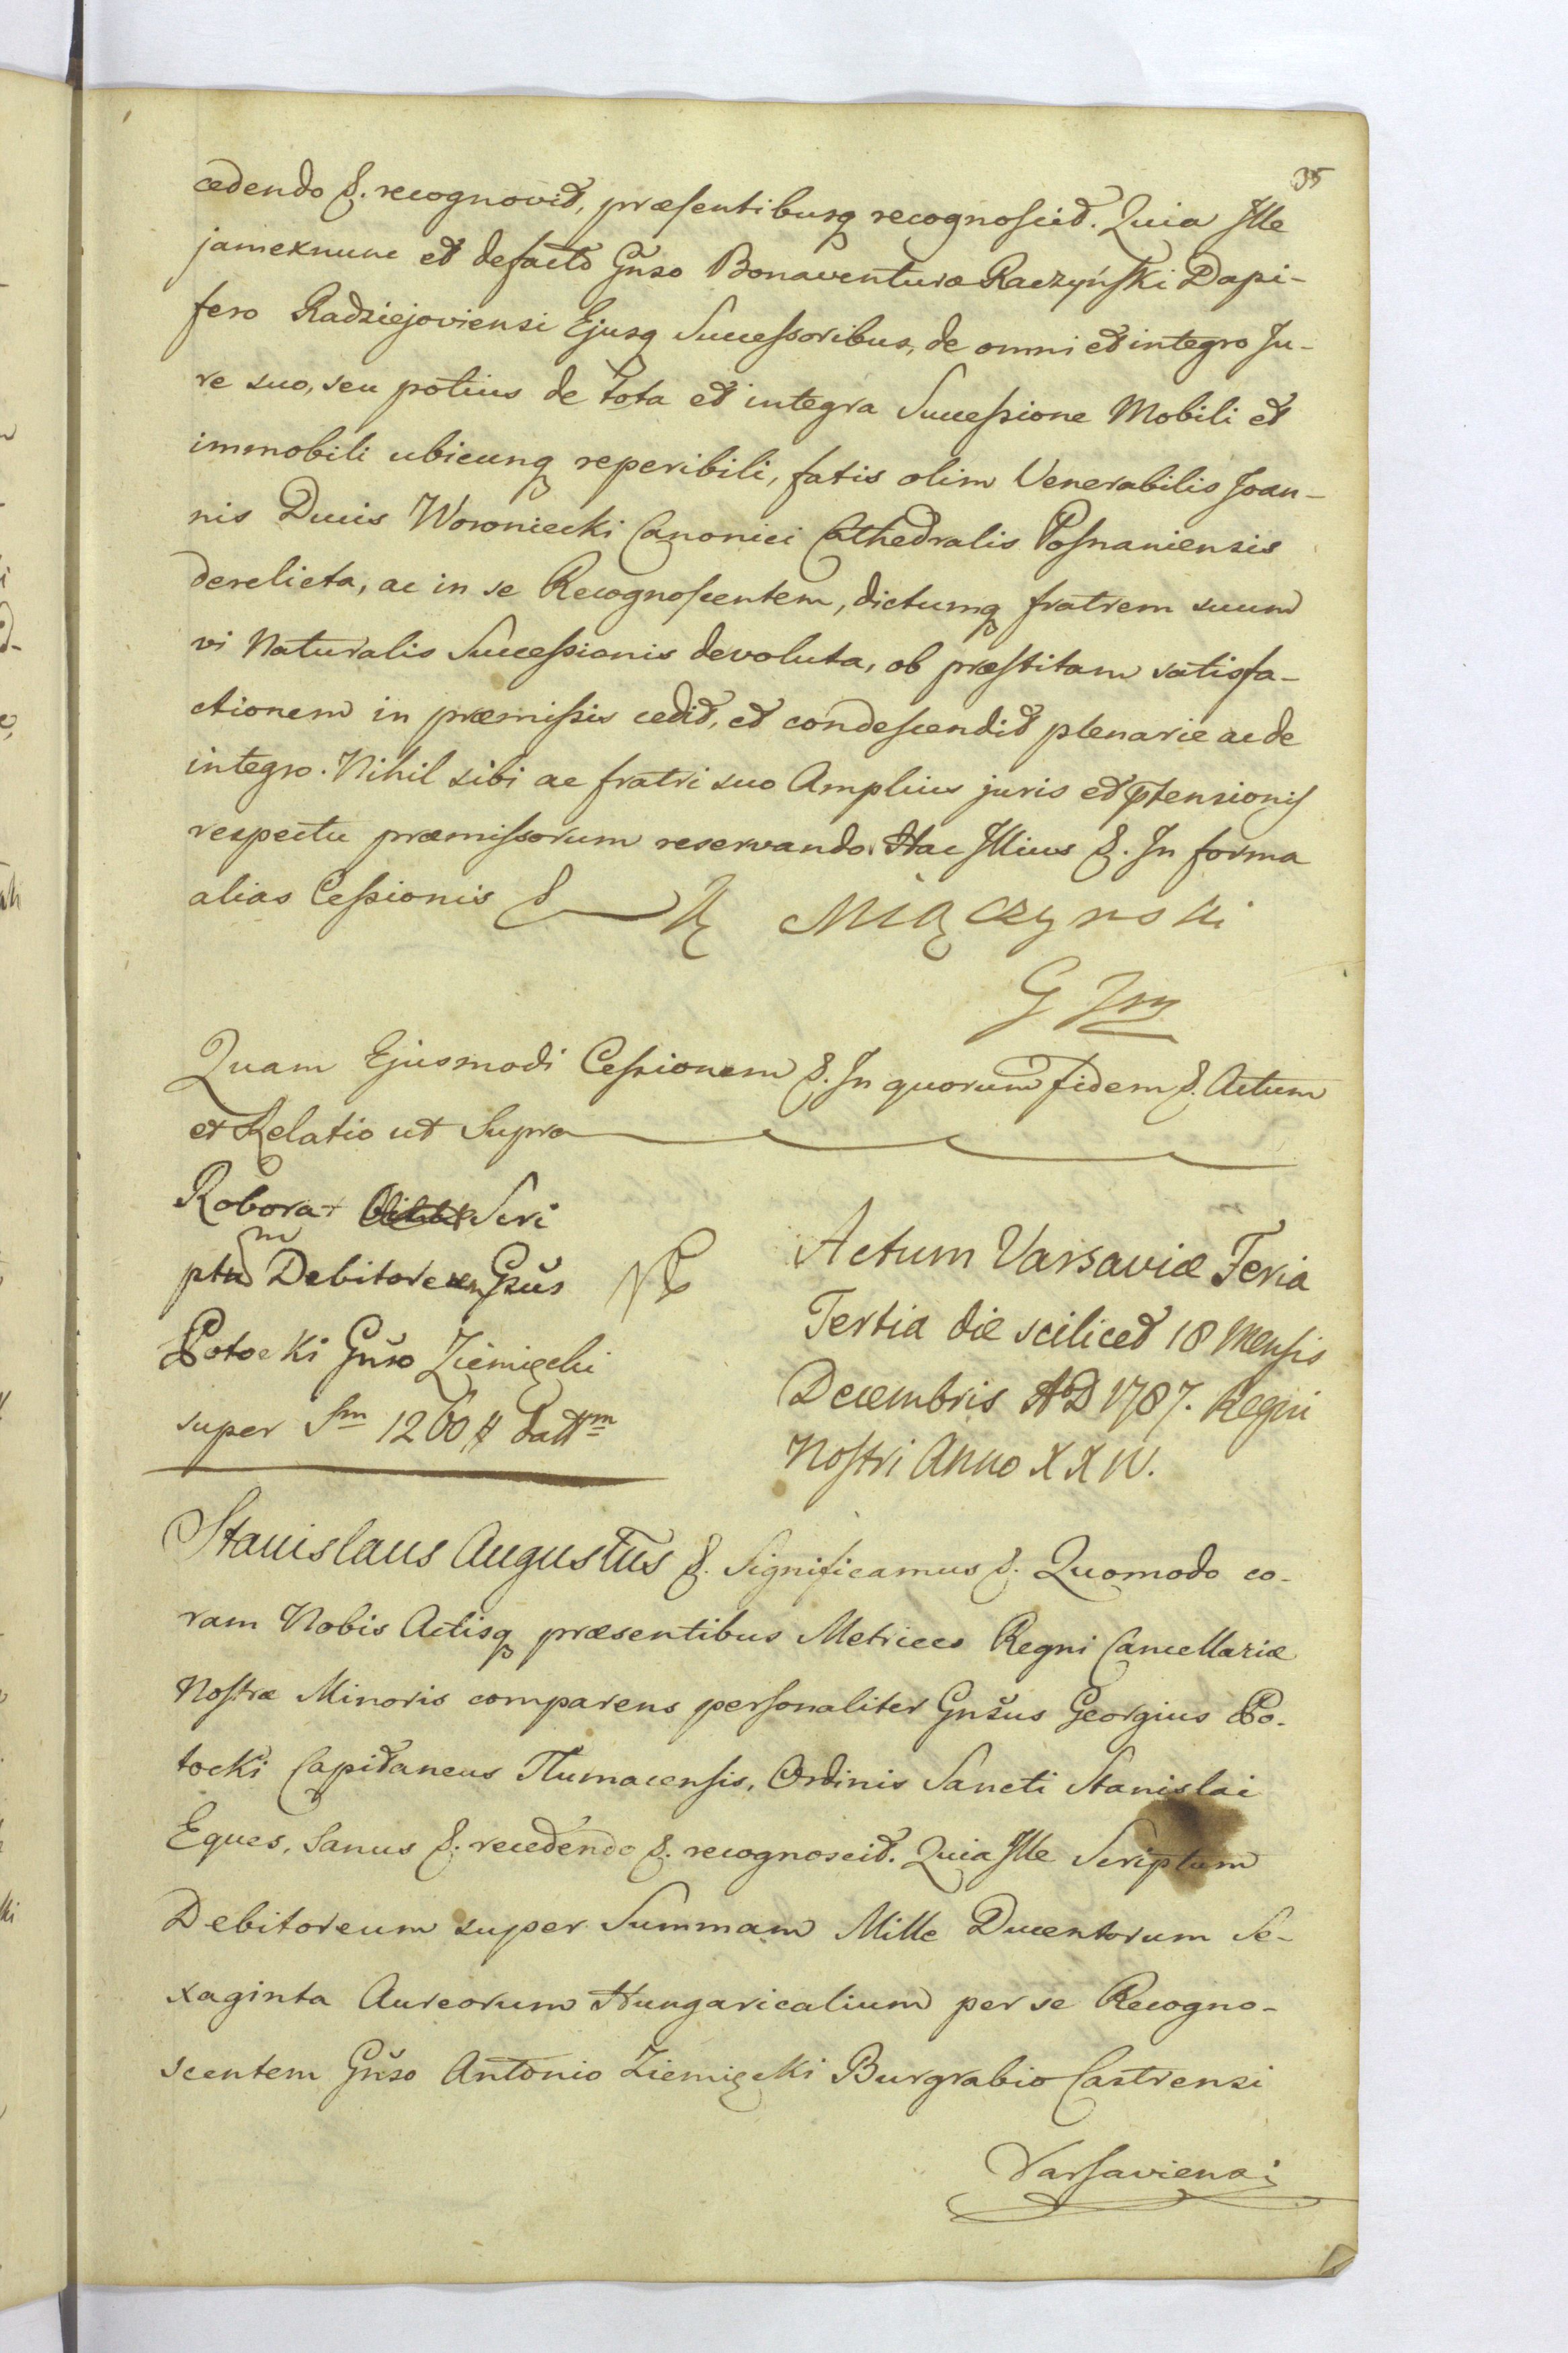 35
cedendo &. recognovit, præsentibusq recognoscit. Quia Ille
jamexnunc et defacto Gnso Bonaventuræ Raczyński Dapi-
fero Radziejoviensi Ejusq Successoribus, de omni et integro Ju-
re suo, seu potius de tota et integra Successione Mobili et
immobili ubicunq reperibili, fatis olim Venerabilis Joan-
nis Ducis Woroniecki Canonici Cathedralis Posnaniensis
derelicta, ac in se Recognoscentem, dictumq fratrem suum
vi Naturalis Successionis devoluta, ob præstitam satisfa-
ctionem in præmissis cedit, et condescendit plenarie ac de
integro. Nihil sibi ac fratri suo Amplius juris et ptensionis
respectu præmissorum reservando. Hac Illius &. In forma
alias Cessionis & Miączynski
G Jm
Quam Ejusmodi Cessionem &. In quorum fidem &. Actum
et Relatio ut Supra
Roborat Scri
ptum Debitoreum Gnsus
Potocki Gnso Ziemięcki
super Sm 1260 # dattm
Actum Varsaviæ Feria
Tertia die scilicet 18 Mensis
Decembris AD 1787. Regni
Nostri Anno XXIV.
Stanislaus Augustus &. Significamus &. Quomodo co-
ram Nobis Actisq præsentibus Metrices Regni Cancellariæ
Nostræ Minoris comparens personaliter Gnsus Georgius Po-
tocki Capitaneus Tlumacensis, Ordinis Sancti Stanislai
Eques, Sanus &. recedendo &. recognoscit. Quia Ille Scriptum
Debitoreum super Summam Mille Ducentorum Se-
xaginta Aureorum Hungaricalium per se Recogno-
scentem Gnso Antonio Ziemięcki Burgrabio Castrensi
Varsaviensi